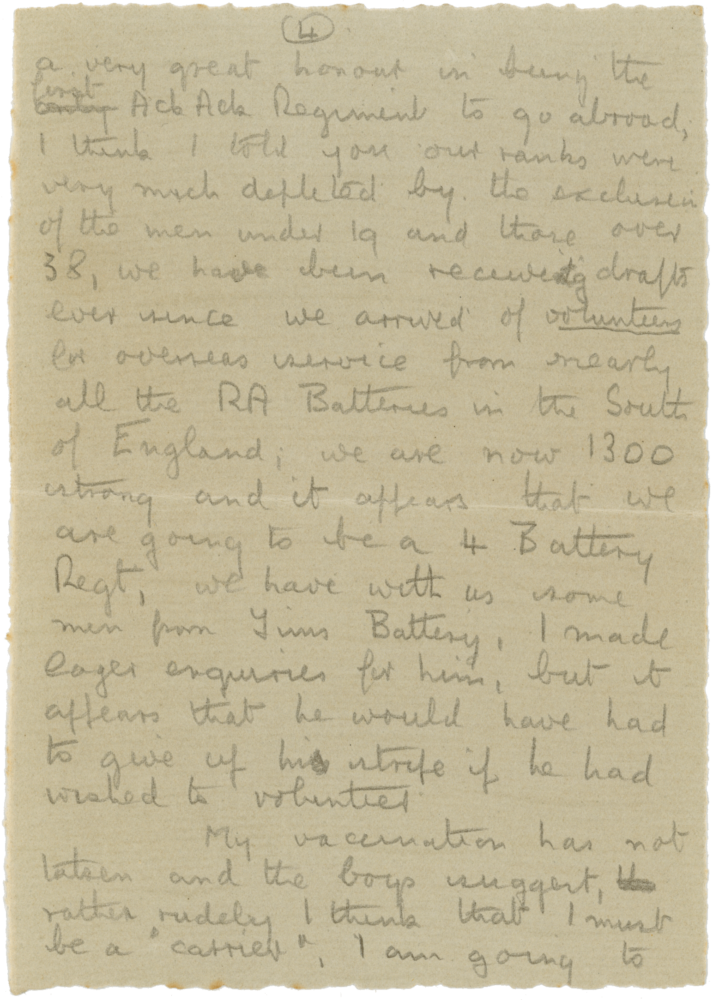 4
a very great honour in being the
first
only Ack Ack Regiment to go abroad,
I think I told you our ranks were
very much depleted by the exclusion
of the men under 19 and those over
38, we have been receiving drafts
ever since we arrived of volunteers
for overseas service from nearly
all the RA Batteries in the South
of England; we are now 1300
strong and it appears that we
are going to be a 4 Battery
Regt, we have with us some
men from Jims Battery, I made
eager enquiries for him, but it
appears that he would have had
to give up his stripe if he had
wished to volunteer.
My vaccination has not
taken and the boys suggest,
rather rudely I think that I must
be a "carrier", I am going to